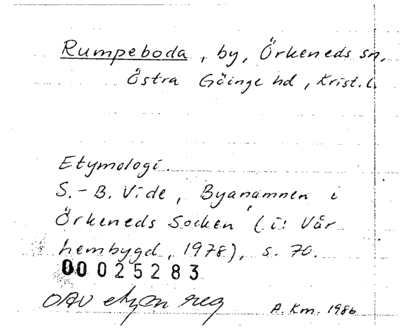 Rumpeboda, by, Örkeneds sn,
Östra Göinge hd, Krist. l.
Etymologi.
S.-B. Vide, Byanamnen i
Örkeneds Socken (i: Vår
hembygd, 1978), s. 70.
00025283
OAU
A. Km. 1986